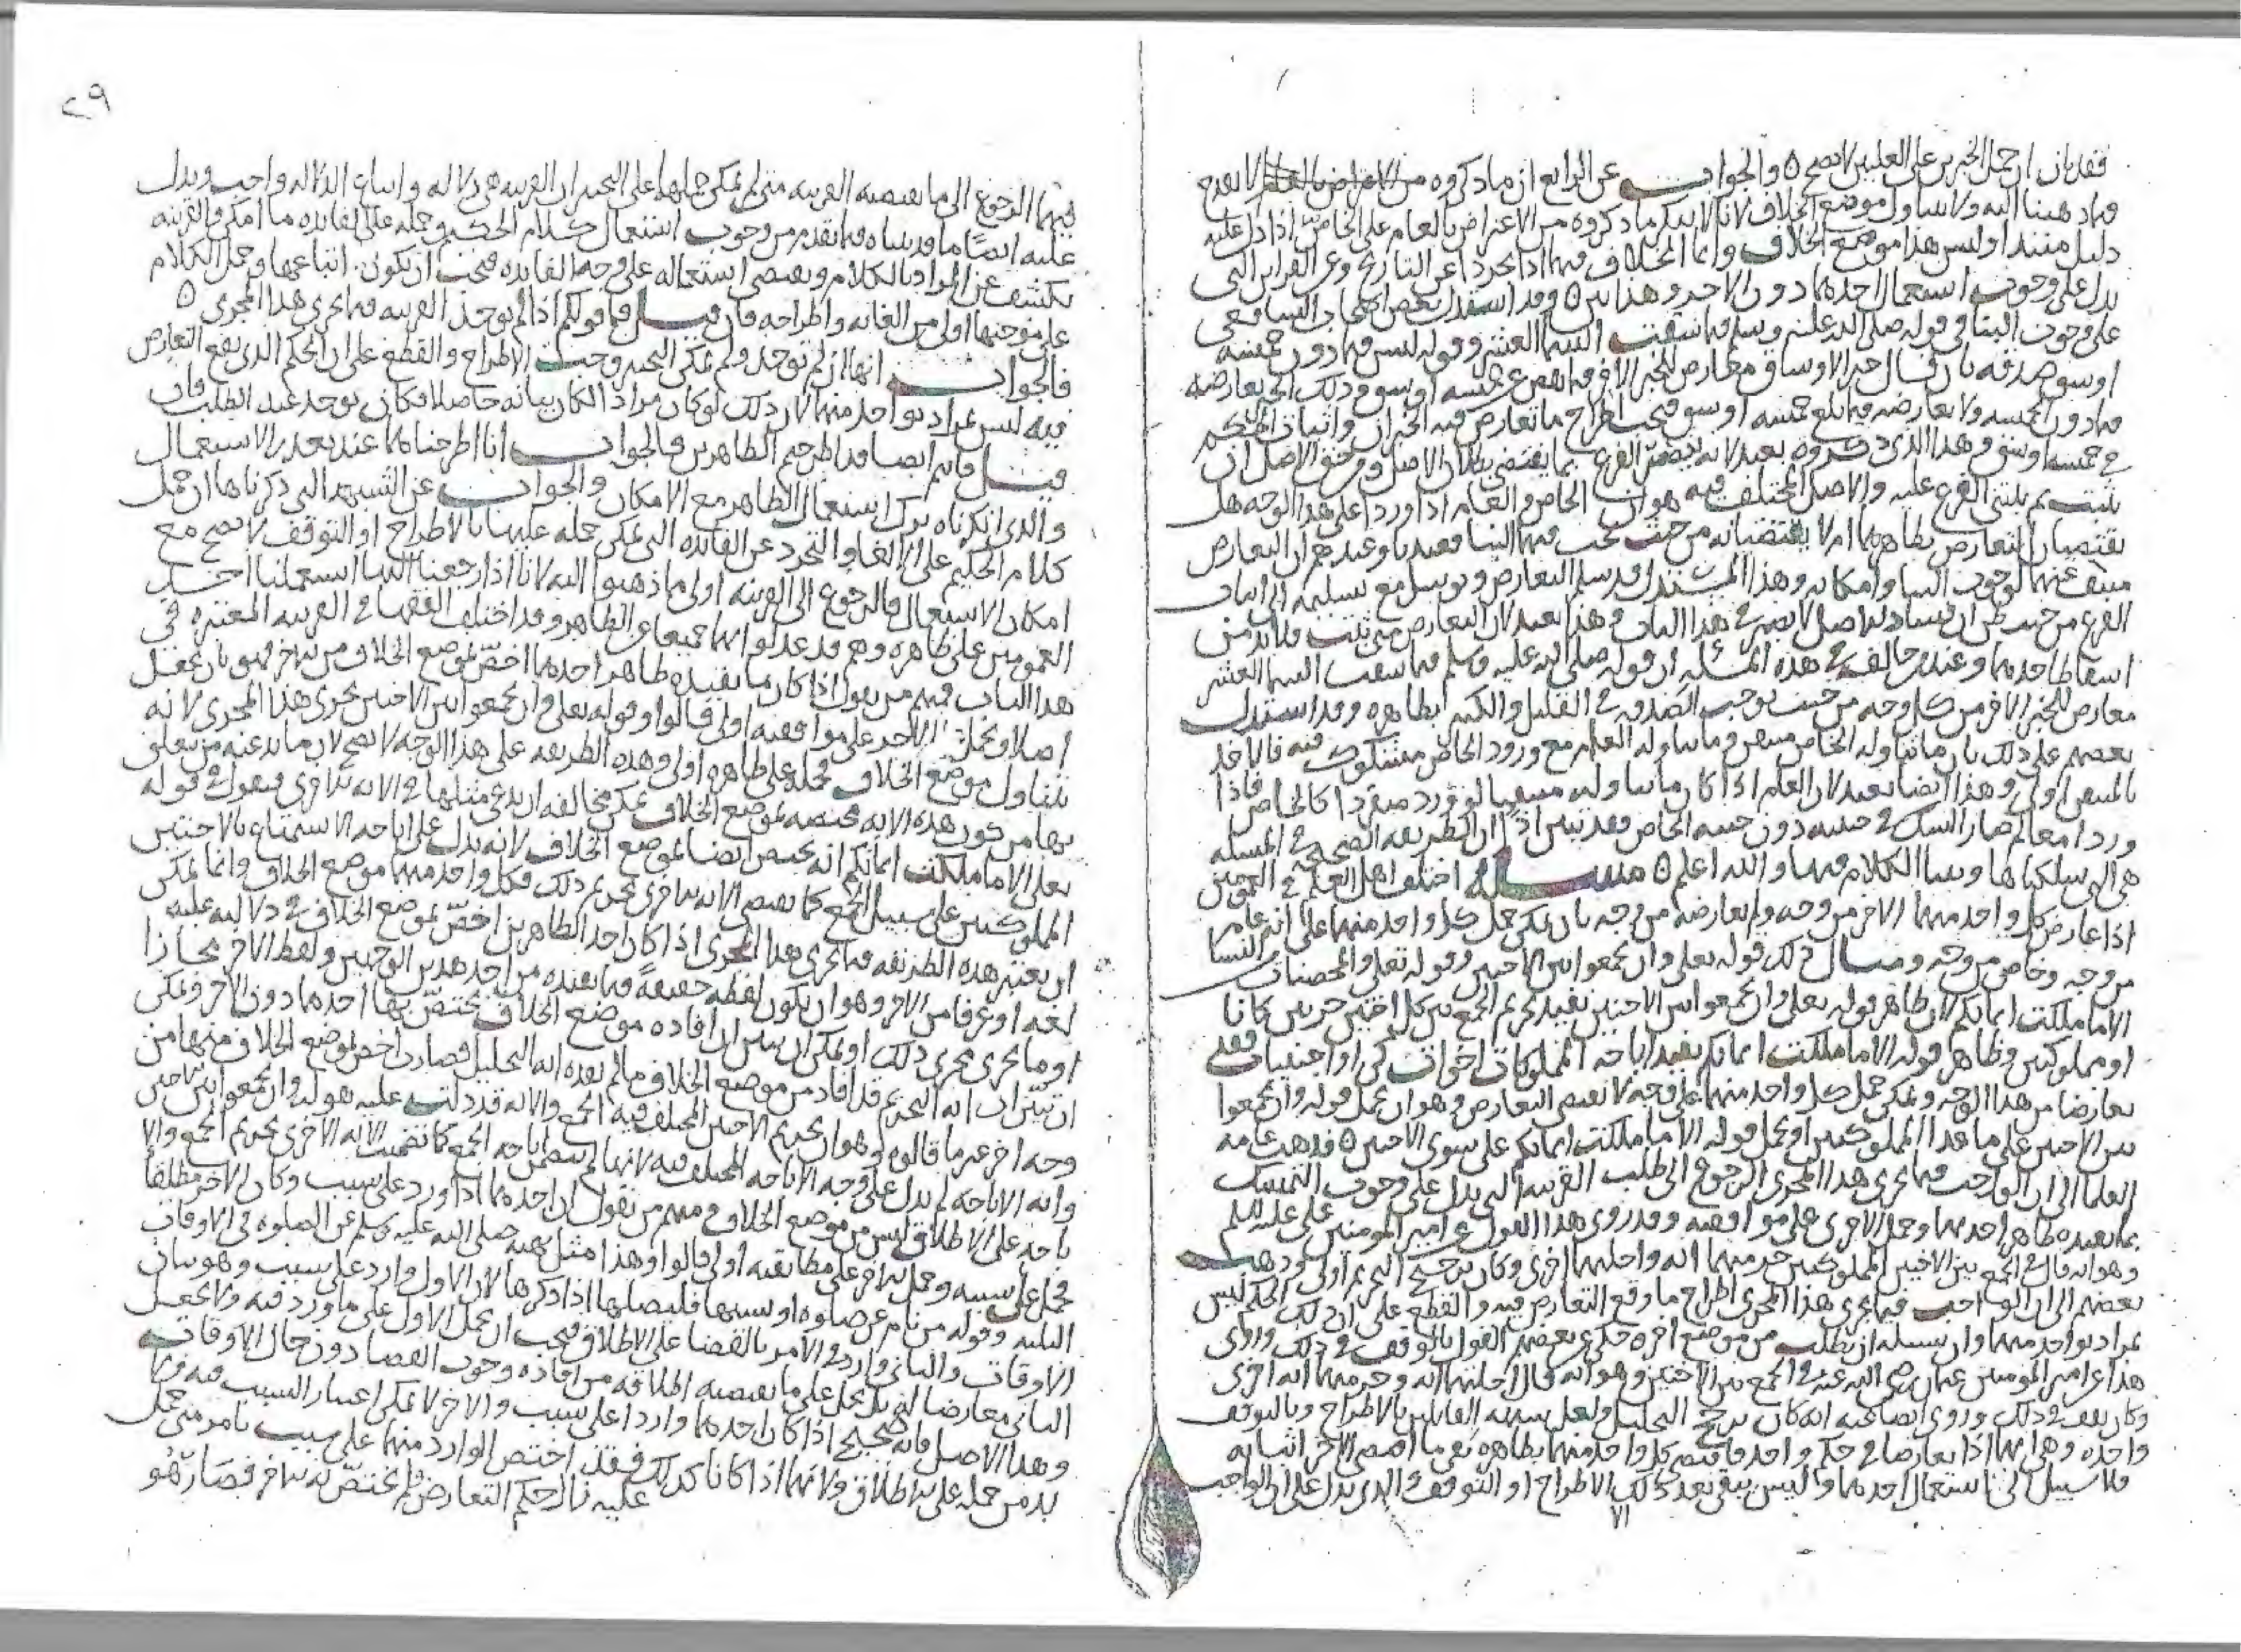 فقد بان ان حمل الخبرين على العلمين لا يصح ٥ والجواب عن الرابع ان ما ذكروه من الاعراض بالعام لا يقدح
فيما ذهبنا اليه ولا يتناول موضع الخلاف لانا لا ننكر ما ذكروه من الاعتراض بالعام على الخاص اذا دل عليه
دليل مبتدا وليس هذا موضع الخلاف وانما الخلاف فيهما اذا تجردا عن التاريخ وعن القراين التي
يدل على وجوب استعمال احدهما دون الاخر وهذا بين ٥ وقد استدل بعض اصحاب الشافعي
على وجوب البنا في قوله صلى الله عليه وسلم فيما سقت السما العشر وقوله ليس فيما دون خمسه
اوسق صدقه بان قال خبر الاوساق معارض للخبر الاخر فيما نقص عن خمسه اوسق وذلك الخبر يعارضه
فيما دون الخمسه ولا يعارضه فيما بلغ خمسه اوسق فيجب اطراح ما تعارض فيه الخبران واثبات الحكم
في خمسه اوسق وهذا الذي ذكروه بعيد لانه يصحح الفرع بما يقتضي بطلان الاصل ومن حق الاصل ان
يثبت ثم يبتني الفرع عليه والاصل المختلف فيه هو ان الخاص والعام اذا وردا على هذا الوجه هل
يقتضيان التعارض بظاهرهما ام لا يقتضيانه من حيث يجب فيهما البنا فعندنا وعندهم ان التعارض
منتف عنهما لوجوب البنا وامكانه وهذا المستدل قد سلم التعارض وتوسل مع تسليمه الى اثبات
الفرع من حيث ظن ان فساد الاصل لا يضر في هذا الباب وهذا بعيد لان التعارض متى ثبت فلا بد من
اسقاط احدهما وعند من خالف في هذه المسئله ان قوله صلى الله عليه وسلم فيما سقت السما العشر
معارض للخبر الاخر من كل وجه من حيث يوجب الصدقه في القليل والكثير بظاهره وقد استدل
بعضهم على ذلك بان ما تناوله الخاص متيقن وما تناوله العام مع ورود الخاص مشكوك فيه فالاخذ
بالمتيقن اولى وهذا ايضا بعيد لان العام اذا كان ما تناوله متيقنا لو ورد منفردا كالخاص فاذا
وردا معا لم صار الشك في جنبه دون جنبه الخاص وقد تبين اذا ان الطريقه الصحيحه في المسله
هي التي سلكناها وبينا الكلام فيها والله اعلم ٥ مسله اختلف اهل العلم في العمومين
اذا عارض كل واحد منهما الاخر من وجه ولم يعارضه من وجه بان يمكن حمل كل واحد منهما على انه عام
من وجه وخاص من وجه ومثال ذلك قوله تعلى وان تجمعوا بين الاختين وقوله تعلى والمحصنات من النسا
الا ما ملكت ايمانكم لان ظاهر قوله تعلى وان تجمعوا بين الاختين يفيد تحريم الجمع بين كل اختين حرتين كانتا
او مملوكتين وظاهر قوله الا ما ملكت ايمانكم يفيد اباحه المملوكات اخوات كن او اجنبيات فقد
تعارضا من هذا الوجه ويمكن حمل كل واحد منهما على وجه لا يقتضي التعارض وهو ان يحمل قوله وان تجمعوا
بين الاختين على ما عدا المملوكتين او يحمل قوله الا ما ملكت ايمانكم على سوى الاختين ٥ فذهب عامه
العلما الى ان الواجب فيما يجري هذا المجرى الرجوع الى طلب القرينه التي تدل على وجوب التمسك
بما يفيده ظاهر احدهما وحمل الاخرى على موافقته وقد روي هذا القول عن امير المومنين علي عليه السلم
وهو انه قال في الجمع بين الاختين المملوكتين حرمتهما ايه واحلتهما اخرى وكان يرجح التحريم اولى وذهب
بعضهم الى ان الواجب فيما يجري هذا المجرى اطراح ما وقع التعارض فيه والقطع على ان ذلك الحكم ليس
بمراد بواحد منهما وان سبيله ان يطلب من موضع اخر وحكي عن بعضهم القول بالوقف في ذلك وروي
هذا عن امير المومنين عثمان رضي الله عنه في الجمع بين الاختين وهو انه قال احلتهما ايه وحرمتهما ايه اخرى
وكان يقف في ذلك وروي ايضا عنه انه كان يرجح التحليل ولعل شبهه القايلين بالاطراح وبالتوقف
واحده وهي انهما اذا تعارضا في حكم واحد فاقتضى كل واحد منهما بظاهره نفي ما اقتضى الاخر اثباته
فلا سبيل الى استعمال احدهما وليس يبقى بعد ذلك الا الاطراح او التوقف والذي يدل على ان الواجب
٧١
٢٩
فيهما الرجوع الى ما يقتضيه القرينه متى لم يمكن حملها على التخيير ان القرينه هي دلاله واتباع الدلاله واجب ويدل
عليه ايضا ما قد بيناه فيما تقدم من وجوب استعمال كلام الحكيم وحمله على الفايده ما امكن والقرينه
تكشف عن المراد بالكلام ويقتضي استعماله على وجه الفايده فيجب ان يكون اتباعها وحمل الكلام
على موجبها اولى من الغائه واطراحه فان قيل فما قولكم اذا لم توجد القرينه فيما يجري هذا المجرى ٥
فالجواب انها ان لم توجد ولم يمكن التخيير وجب الاطراح والقطع على ان الحكم الذي يقع التعارض
فيه ليس بمراد بواحد منهما لان ذلك لو كان مرادا لكان بيانه حاصلا فكان يوجد عند الطلب فان
قيل فانتم ايضا قد اطرحتم الظاهرين فالجواب انا اطرحناهما عند تعذر الاستعمال
والذي انكرناه ترك استعمال الظاهر مع الامكان والجواب عن الشبهه التي ذكرناها ان حمل
كلام الحكيم على الالغا والتجرد عن الفايده التي يمكن حمله عليها بالاطراح او التوقف لا يصح مع
امكان الاستعمال فالرجوع الى القرينه اولى مما ذهبوا اليه لانا اذا رجعنا اليها استعملنا احد
العمومين على ظاهره وهم قد عدلوا بهما جميعا عن الظاهر وقد اختلف الفقها في القرينه المعتبره في
هذا الباب فمنهم من يقول اذا كان ما يفيده ظاهر احدهما اخص بموضع الخلاف من الاخر فهو بان يجعل
اصلا ويحمل الاخر على موافقته اولى قالوا وقوله تعلى وان تجمعوا بين الاختين يجري هذا المجرى لانه
يتناول موضع الخلاف فحمله على ظاهره اولى وهذه الطريقه على هذا الوجه لا تصح لان ما يدعيه من تعلق
بها من كون هذه الايه مختصه بموضع الخلاف يمكن مخالفه ان يدعي مثلها في الايه الاخرى فيقول في قوله
تعلى الا ما ملكت ايمانكم انه يختص ايضا بموضع الخلاف لانه يدل على اباحه الاستمتاع بالاختين
المملوكتين على سبيل الجمع كما يقتضي الايه الاخرى تحريم ذلك فكل واحد منهما موضع الخلاف وانما يمكن
ان يعتبر هذه الطريقه فيما يجري هذا المجرى اذا كان احد الظاهرين اخص بموضع الخلاف في دلالته عليه
لغه او عرفا من الاخر وهو ان يكون لفظه حقيقةً فيما يفيده من احد هذين الوجهين ولفظ الاخر مجازا
او ما يجري مجرى ذلك او يمكن ان يبين ان افاده موضع الخلاف يختص بها احدهما دون الاخر ويمكن
ان يبين ان ايه التحريم قد افاد من موضع الخلاف ما لم يفده ايه التحليل فصارت اخص بموضع الخلاف منها من
وجه اخر غير ما قالوه وهو ان تحريم الاختين المختلف فيه الجمع والايه قد دلت عليه بقوله وان تجمعوا بين الاختين
وايه الاباحه لم تدل على وجه الاباحه المختلف فيه لانها لم يتضمن اباحه الجمع كما تضمنت الايه الاخرى تحريم الجمع والا
باحه على الاطلاق ليس من موضع الخلاف ومنهم من يقول ان احدهما اذا ورد على سبب وكان الاخر مطلقا
فحمل على سببه وحمل الاخر على مطابقته اولى قالوا وهذا مثل نهيه صلى الله عليه وسلم عن الصلوه في الاوقات
الثلثه وقوله من نام عن صلوه او نسيها فليصلها اذا ذكرها لان الاول وارد على سبب وهو بيان
الاوقات والثاني وارد في الامر بالقضا على الاطلاق فيجب ان يحمل الاول على ما ورد فيه ولا يجعل
الثاني معارضا له بل يحمل على ما يقتضيه اطلاقه من افاده وجوب القضا دون حال الاوقات
وهذا الاصل فانه صحيح اذا كان احدهما واردا على سبب والاخر لا يمكن اعتبار السبب فيه فلا
بد من حمله على الاطلاق ولانهما اذا كانا كذلك فقد اختص الوارد منهما على سبب بامر متى حمل
عليه زال حكم التعارض ولم يختص به الاخر فصار هو